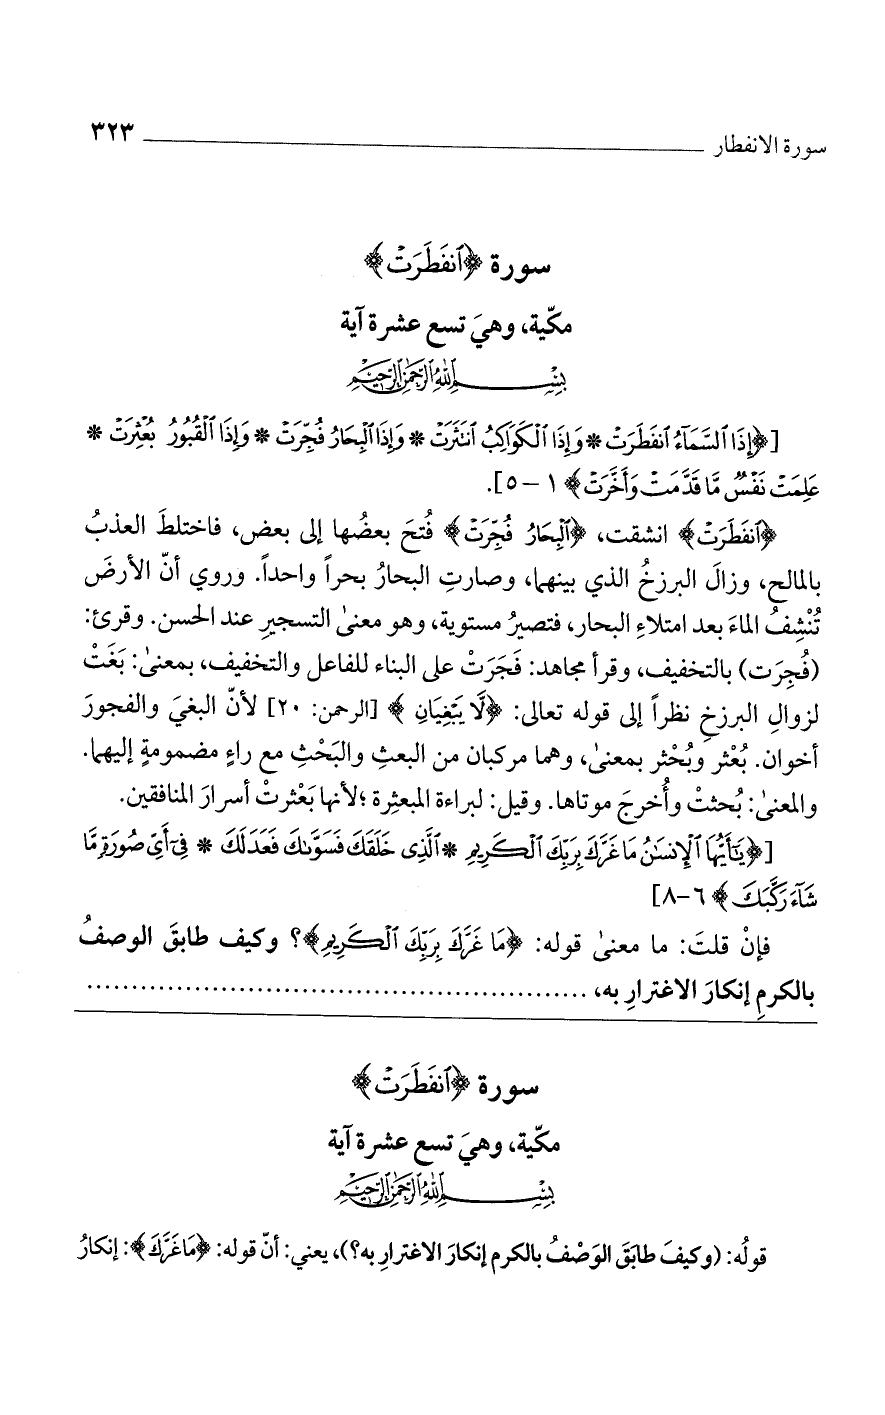 سورة الانفطار ٣٢٣
سورة ﴿ٱنفَطَرَتْ﴾
مكّية، وهيَ تسع عشرة آية
بِسْمِ ٱللَّهِ ٱلرَّحْمَٰنِ ٱلرَّحِيمِ
[﴿إِذَا ٱلسَّمَآءُ ٱنفَطَرَتْ * وَإِذَا ٱلْكَوَاكِبُ ٱنتَثَرَتْ * وَإِذَا ٱلْبِحَارُ فُجِّرَتْ * وَإِذَا ٱلْقُبُورُ بُعْثِرَتْ *
عَلِمَتْ نَفْسٌ مَّا قَدَّمَتْ وَأَخَّرَتْ﴾ ١ – ٥].
﴿ٱنفَطَرَتْ﴾ انشقت، ﴿ٱلْبِحَارُ فُجِّرَتْ﴾ فُتحَ بعضُها إلى بعض، فاختلطَ العذبُ
بالمالح، وزالَ البرزخُ الذي بينهما، وصارتِ البحارُ بحراً واحداً. وروي أنّ الأرضَ
تُنْشِفُ الماءَ بعد امتلاءِ البحار، فتصيرُ مستوية، وهو معنىٰ التسجيرِ عند الحسن. وقرئ:
(فُجِرَت) بالتخفيف، وقرأ مجاهد: فَجَرَتْ على البناء للفاعل والتخفيف، بمعنىٰ: بَغَتْ
لزوالِ البرزخِ نظراً إلى قوله تعالى: ﴿لَّا يَبْغِيَانِ﴾ [الرحمن: ٢٠] لأنّ البغيَ والفجورَ
أخوان. بُعْثر وبُحْثر بمعنىٰ، وهما مركبان من البعثِ والبَحْثِ مع راءٍ مضمومةٍ إليهما.
والمعنىٰ: بُحثتْ وأُخرجَ موتاها. وقيل: لبراءة المبعثِرة ؛لأنها بَعْثرتْ أسرارَ المنافقين.
[﴿يَٰٓأَيُّهَا ٱلْإِنسَٰنُ مَا غَرَّكَ بِرَبِّكَ ٱلْكَرِيمِ * ٱلَّذِى خَلَقَكَ فَسَوَّىٰكَ فَعَدَلَكَ * فِىٓ أَىِّ صُورَةٍ مَّا
شَآءَ رَكَّبَكَ﴾ ٦–٨]
فإنْ قلتَ: ما معنىٰ قوله: ﴿مَا غَرَّكَ بِرَبِّكَ ٱلْكَرِيمِ﴾؟ وكيف طابقَ الوصفُ
بالكرمِ إنكارَ الاغترارِ به، ......................................................
سورة ﴿ٱنفَطَرَتْ﴾
مكّية، وهيَ تسع عشرة آية
بِسْمِ ٱللَّهِ ٱلرَّحْمَٰنِ ٱلرَّحِيمِ
قولُه: (وكيفَ طابَقَ الوَصْفُ بالكرم إنكارَ الاغترارِ به؟)، يعني: أنّ قوله: ﴿مَا غَرَّكَ﴾: إنكارُ